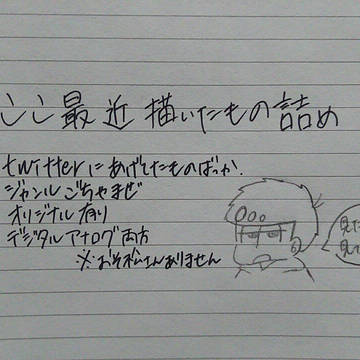 ここ最近描いたもの詰め
twitterにあげてたものばっか.
ジャンルごちゃまぜ
オリジナル有り
デジタルアナログ両方
※おそ松さんありません